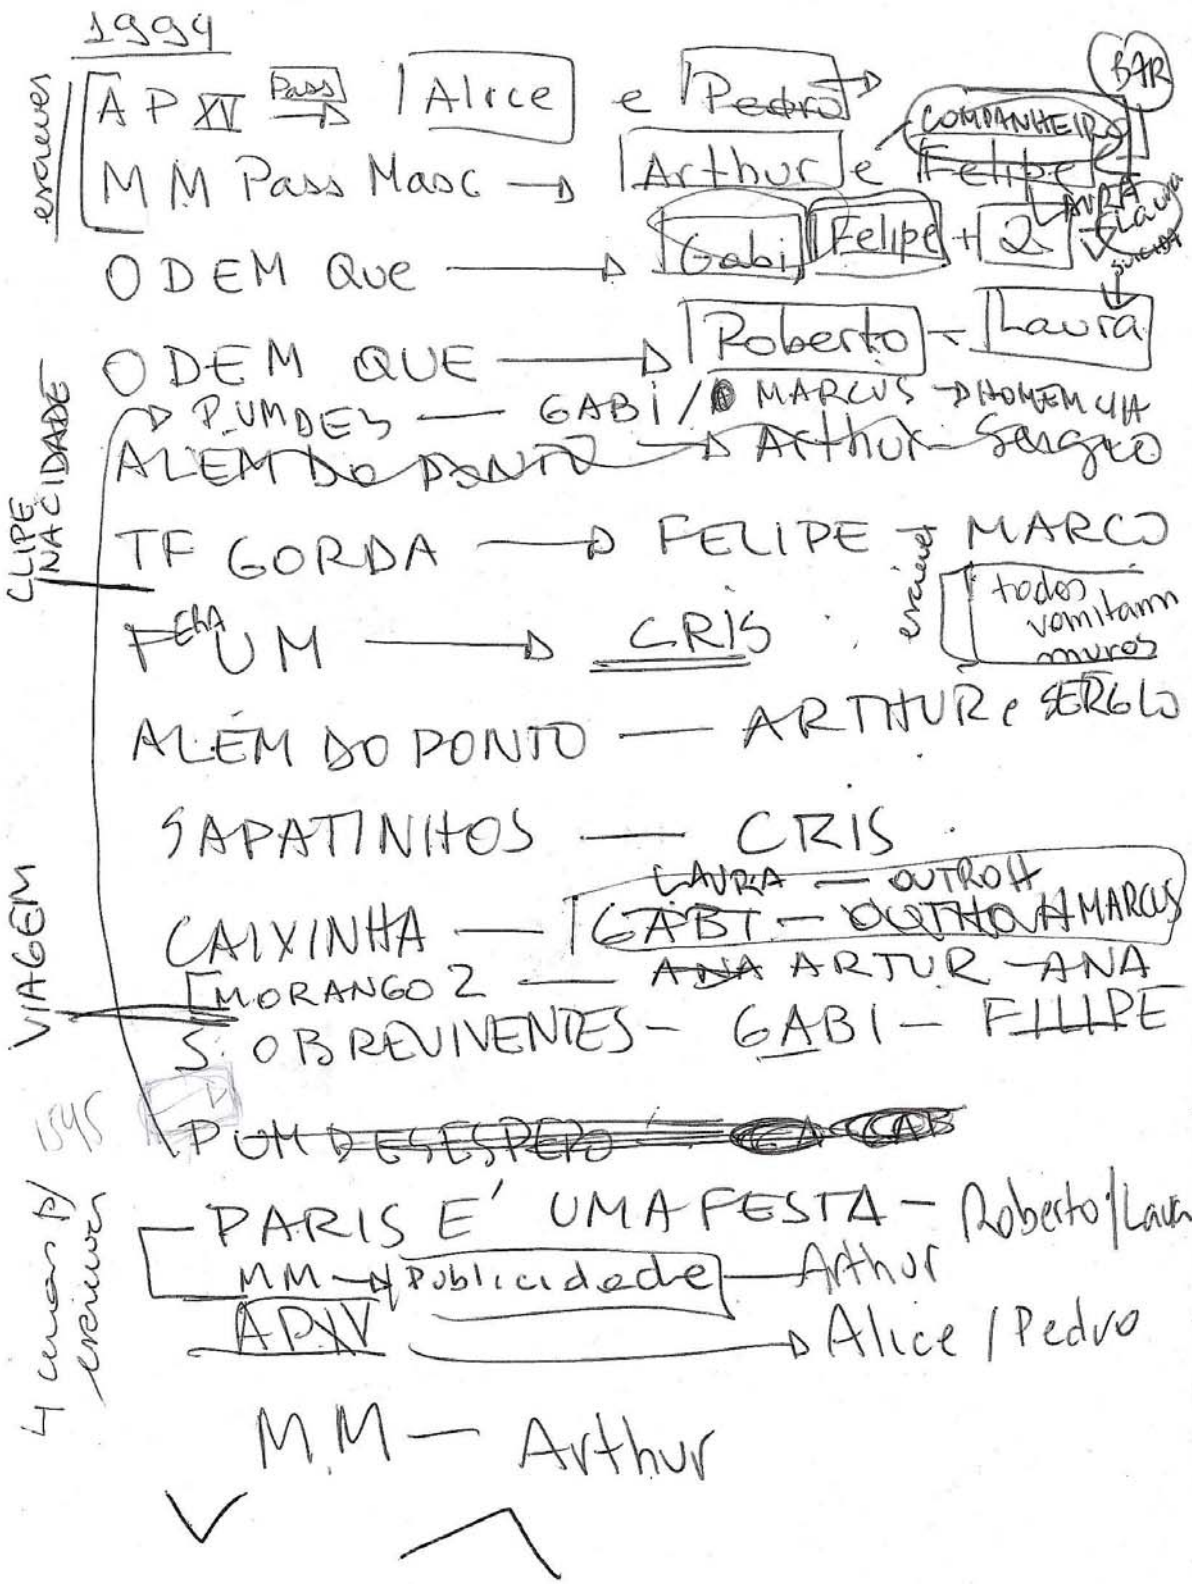 1994
escrever
BAR
AP XV Pass → Alice e Pedro →
COMPANHEIRO
MM Pass Masc → Arthur e Felipe
LAURA
Laura
suicida
O DEM Que → Gabi Felipe + 2
O DEM QUE → Roberto - Laura
CLIPE NA CIDADE
P.UMDES — GABI / MARCUS → HOMEM
ALÉM DO PONTO → Arthur - Sergio
TF GORDA → FELIPE + MARCO
escrever
todos
vomitam
muros
F UM → CRIS
ALÉM DO PONTO — ARTHUR e SERGIO
SAPATINHOS — CRIS
LAURA — OUTRO H
VIAGEM
CAIXINHA — GABI — OUTRO H MARCUS
MORANGO 2 — ANA ARTUR - ANA
SOBREVIVENTES - GABI - FILIPE
P UM DESESPERO GAB
4 cenas p/ escrever
PARIS E' UMA FESTA - Roberto / Laura
MM → Publicidade — Arthur
AP XV → Alice / Pedro
M.M — Arthur